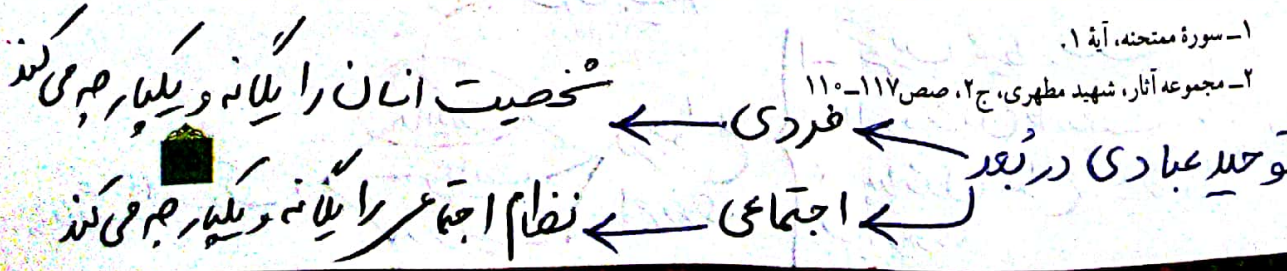 ۱ـ سورهٔ ممتحنه، آیهٔ ۱.
۲ـ مجموعه آثار، شهید مطهری، ج۲، صص۱۱۷ـ۱۱۰
توحید عبادی در بُعد
فردی ← شخصیت انسان را یگانه و یکپارچه می کند
اجتماعی ← نظام اجتماعی را یگانه و یکپارچه می کند